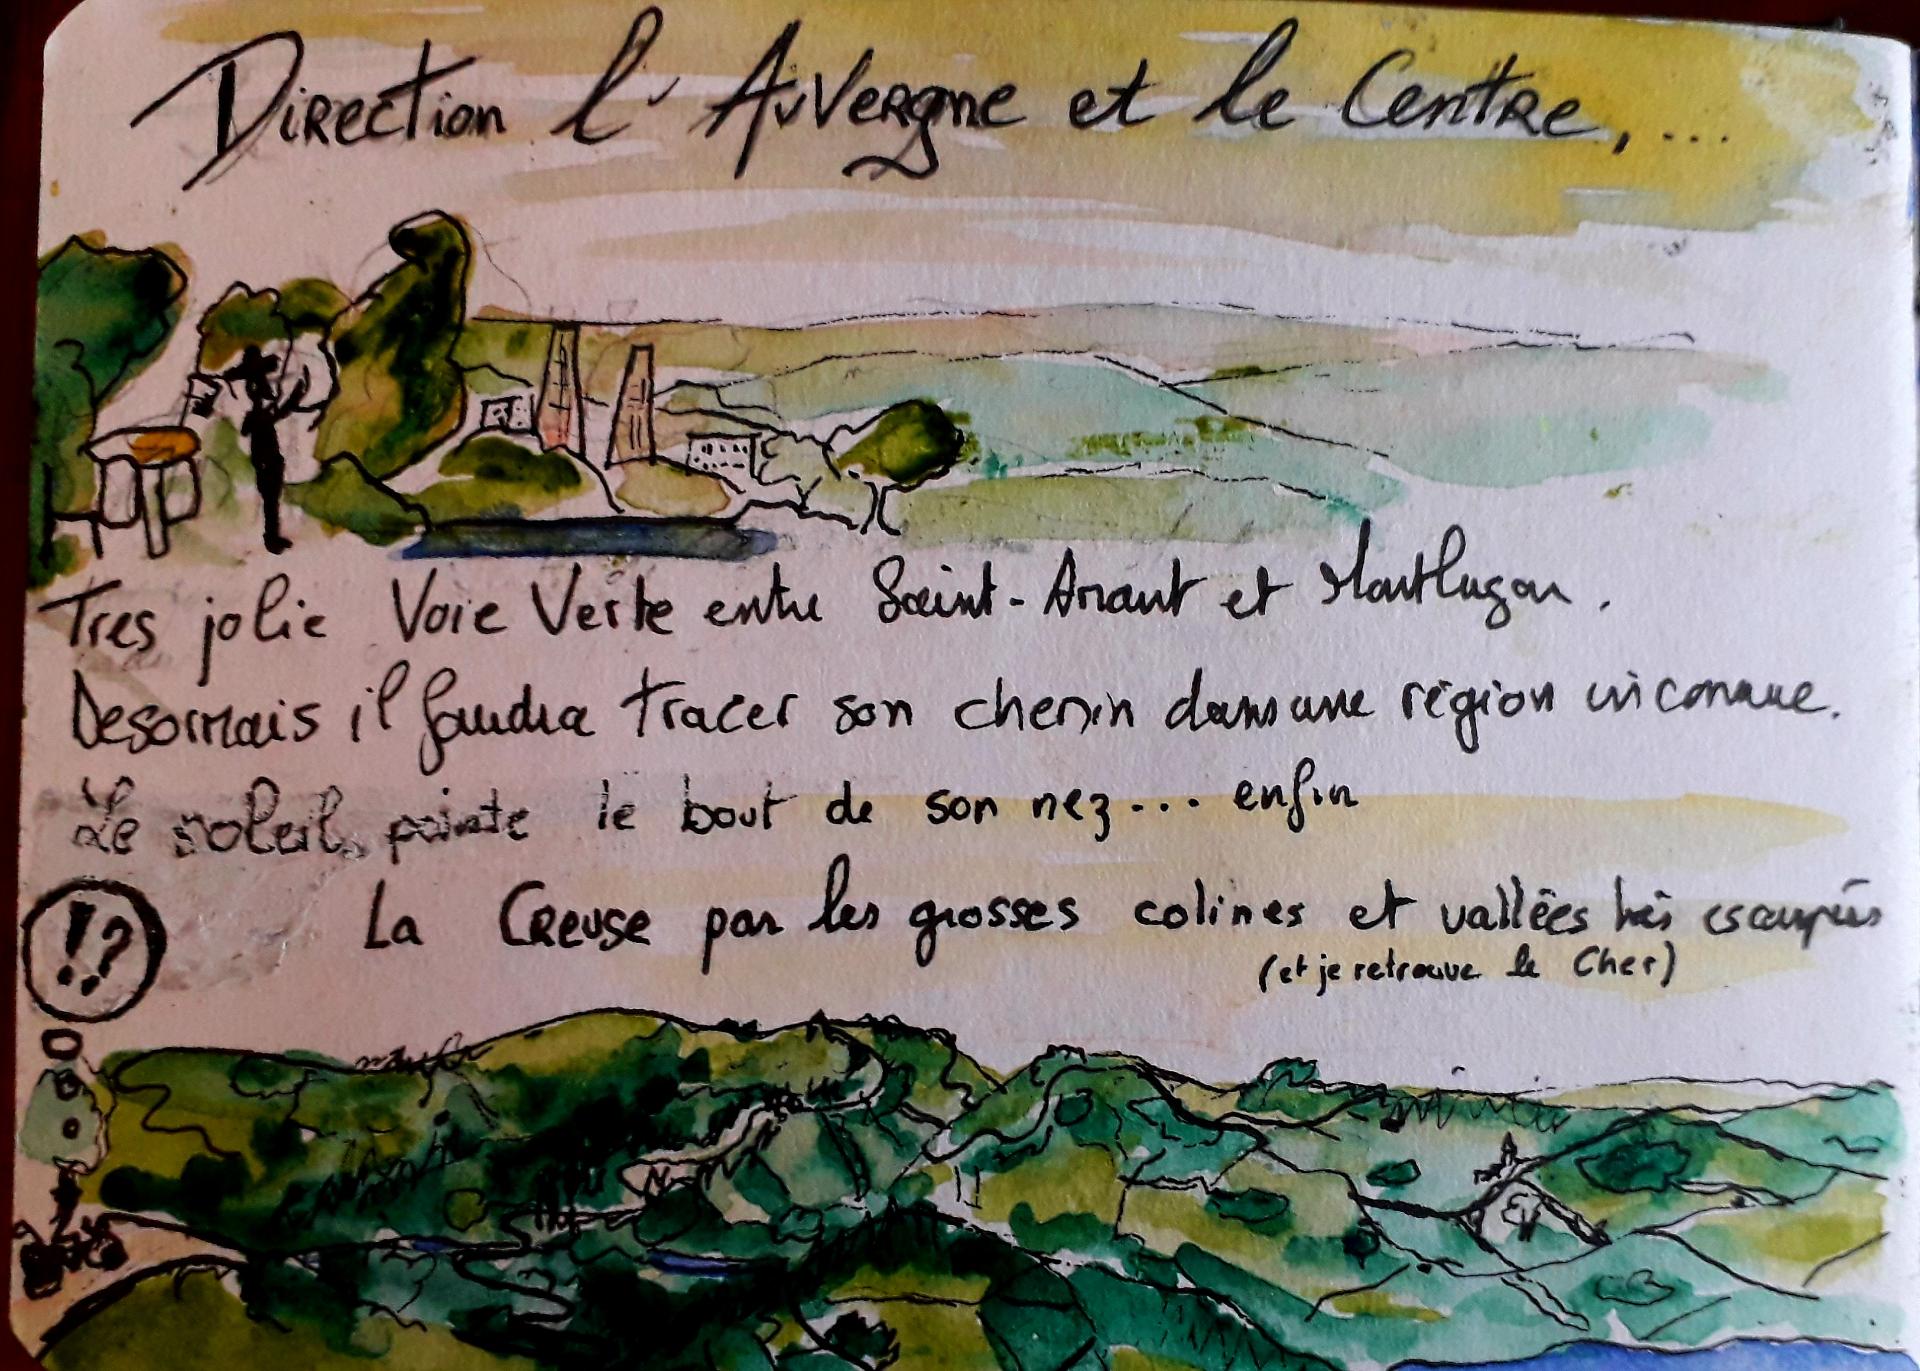 Direction l'Auvergne et le Centre, ...
Tres jolie Voie Verte entre Saint-Amant et Montluçon.
Desormais il faudra tracer son chemin dans une région inconnue.
Le soleil pointe le bout de son nez... enfin
!?
La Creuse par les grosses colines et vallées très escarpées
(et je retrouve le Cher)